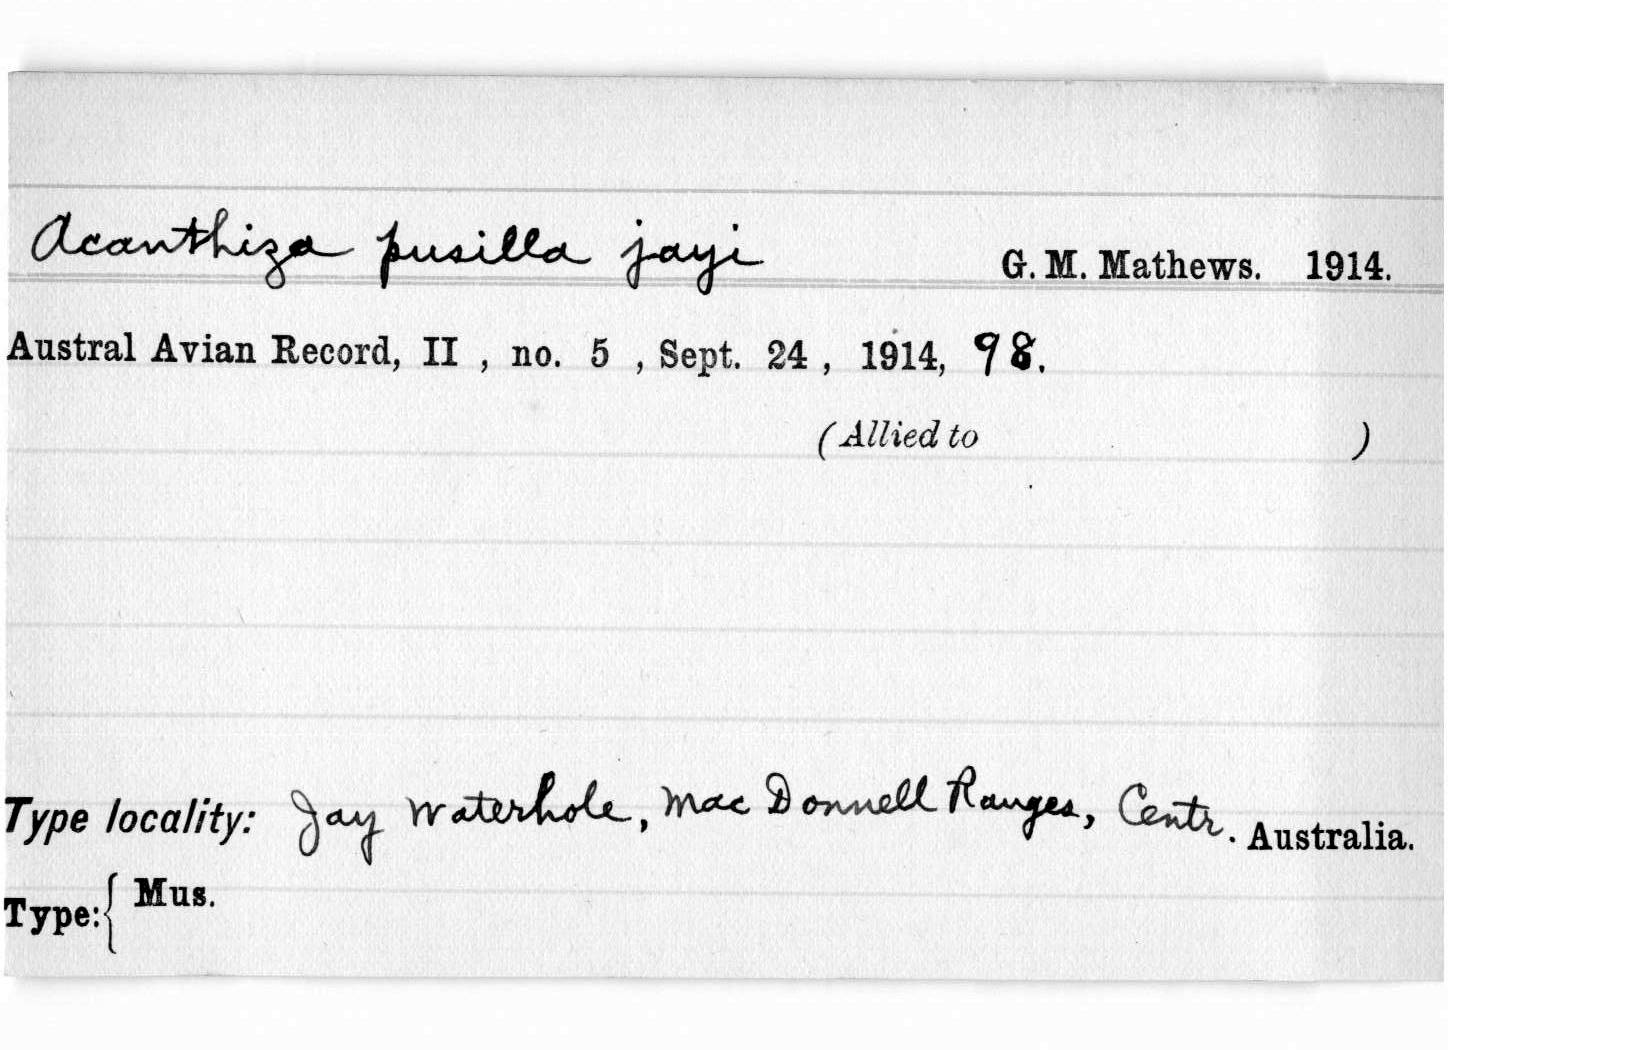 Acanthiza pusilla jayi G. M. Mathews. 1914.
Austral Avian Record, II , no. 5 , Sept. 24 , 1914, 98.
(Allied to )
Type locality: Jay Waterhole, Mac Donnell Ranges, Centr. Australia.
Type:{ Mus.